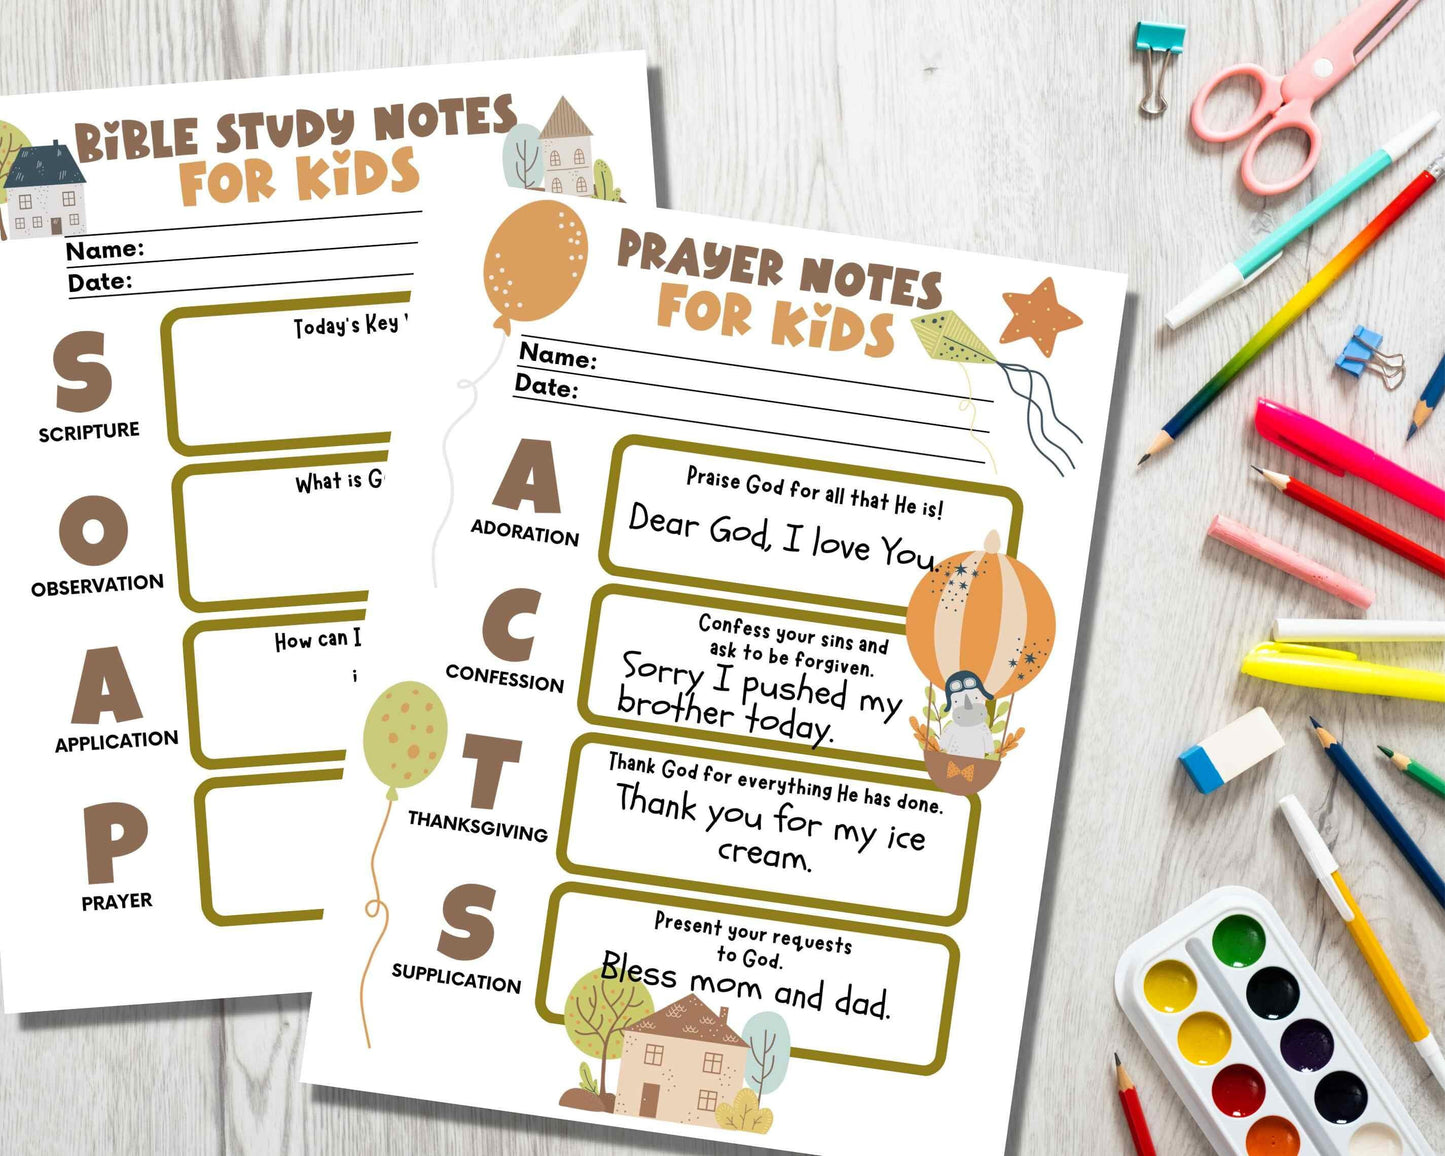 BiBLE STUDY NOTES
FOR KiDS
Name:
Date:
S
SCRIPTURE
Today's Key
O
OBSERVATION
What is
A
APPLICATION
How can I
P
PRAYER
PRAYER NOTES
FOR KiDS
Name:
Date:
A
ADORATION
Praise God for all that He is!
Dear God, I love You.
C
CONFESSION
Confess your sins and
ask to be forgiven.
Sorry I pushed my
brother today.
T
THANKSGIVING
Thank God for everything He has done.
Thank you for my ice
cream.
S
SUPPLICATION
Present your requests
to God.
Bless mom and dad.